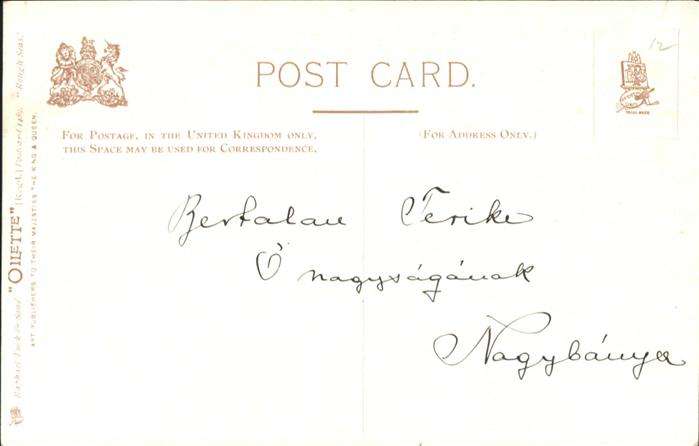 POST CARD.
FOR POSTAGE, IN THE UNITED KINGDOM ONLY,
THIS SPACE MAY BE USED FOR CORRESPONDENCE.
(FOR ADDRESS ONLY.)
12
Bertalan Terike
Ő nagyságának
Nagybánya
Raphael Tuck & Sons' "OILETTE" [Regd.] Postcard "Rough Seas."
ART PUBLISHERS TO THEIR MAJESTIES THE KING & QUEEN.
TRADE MARK